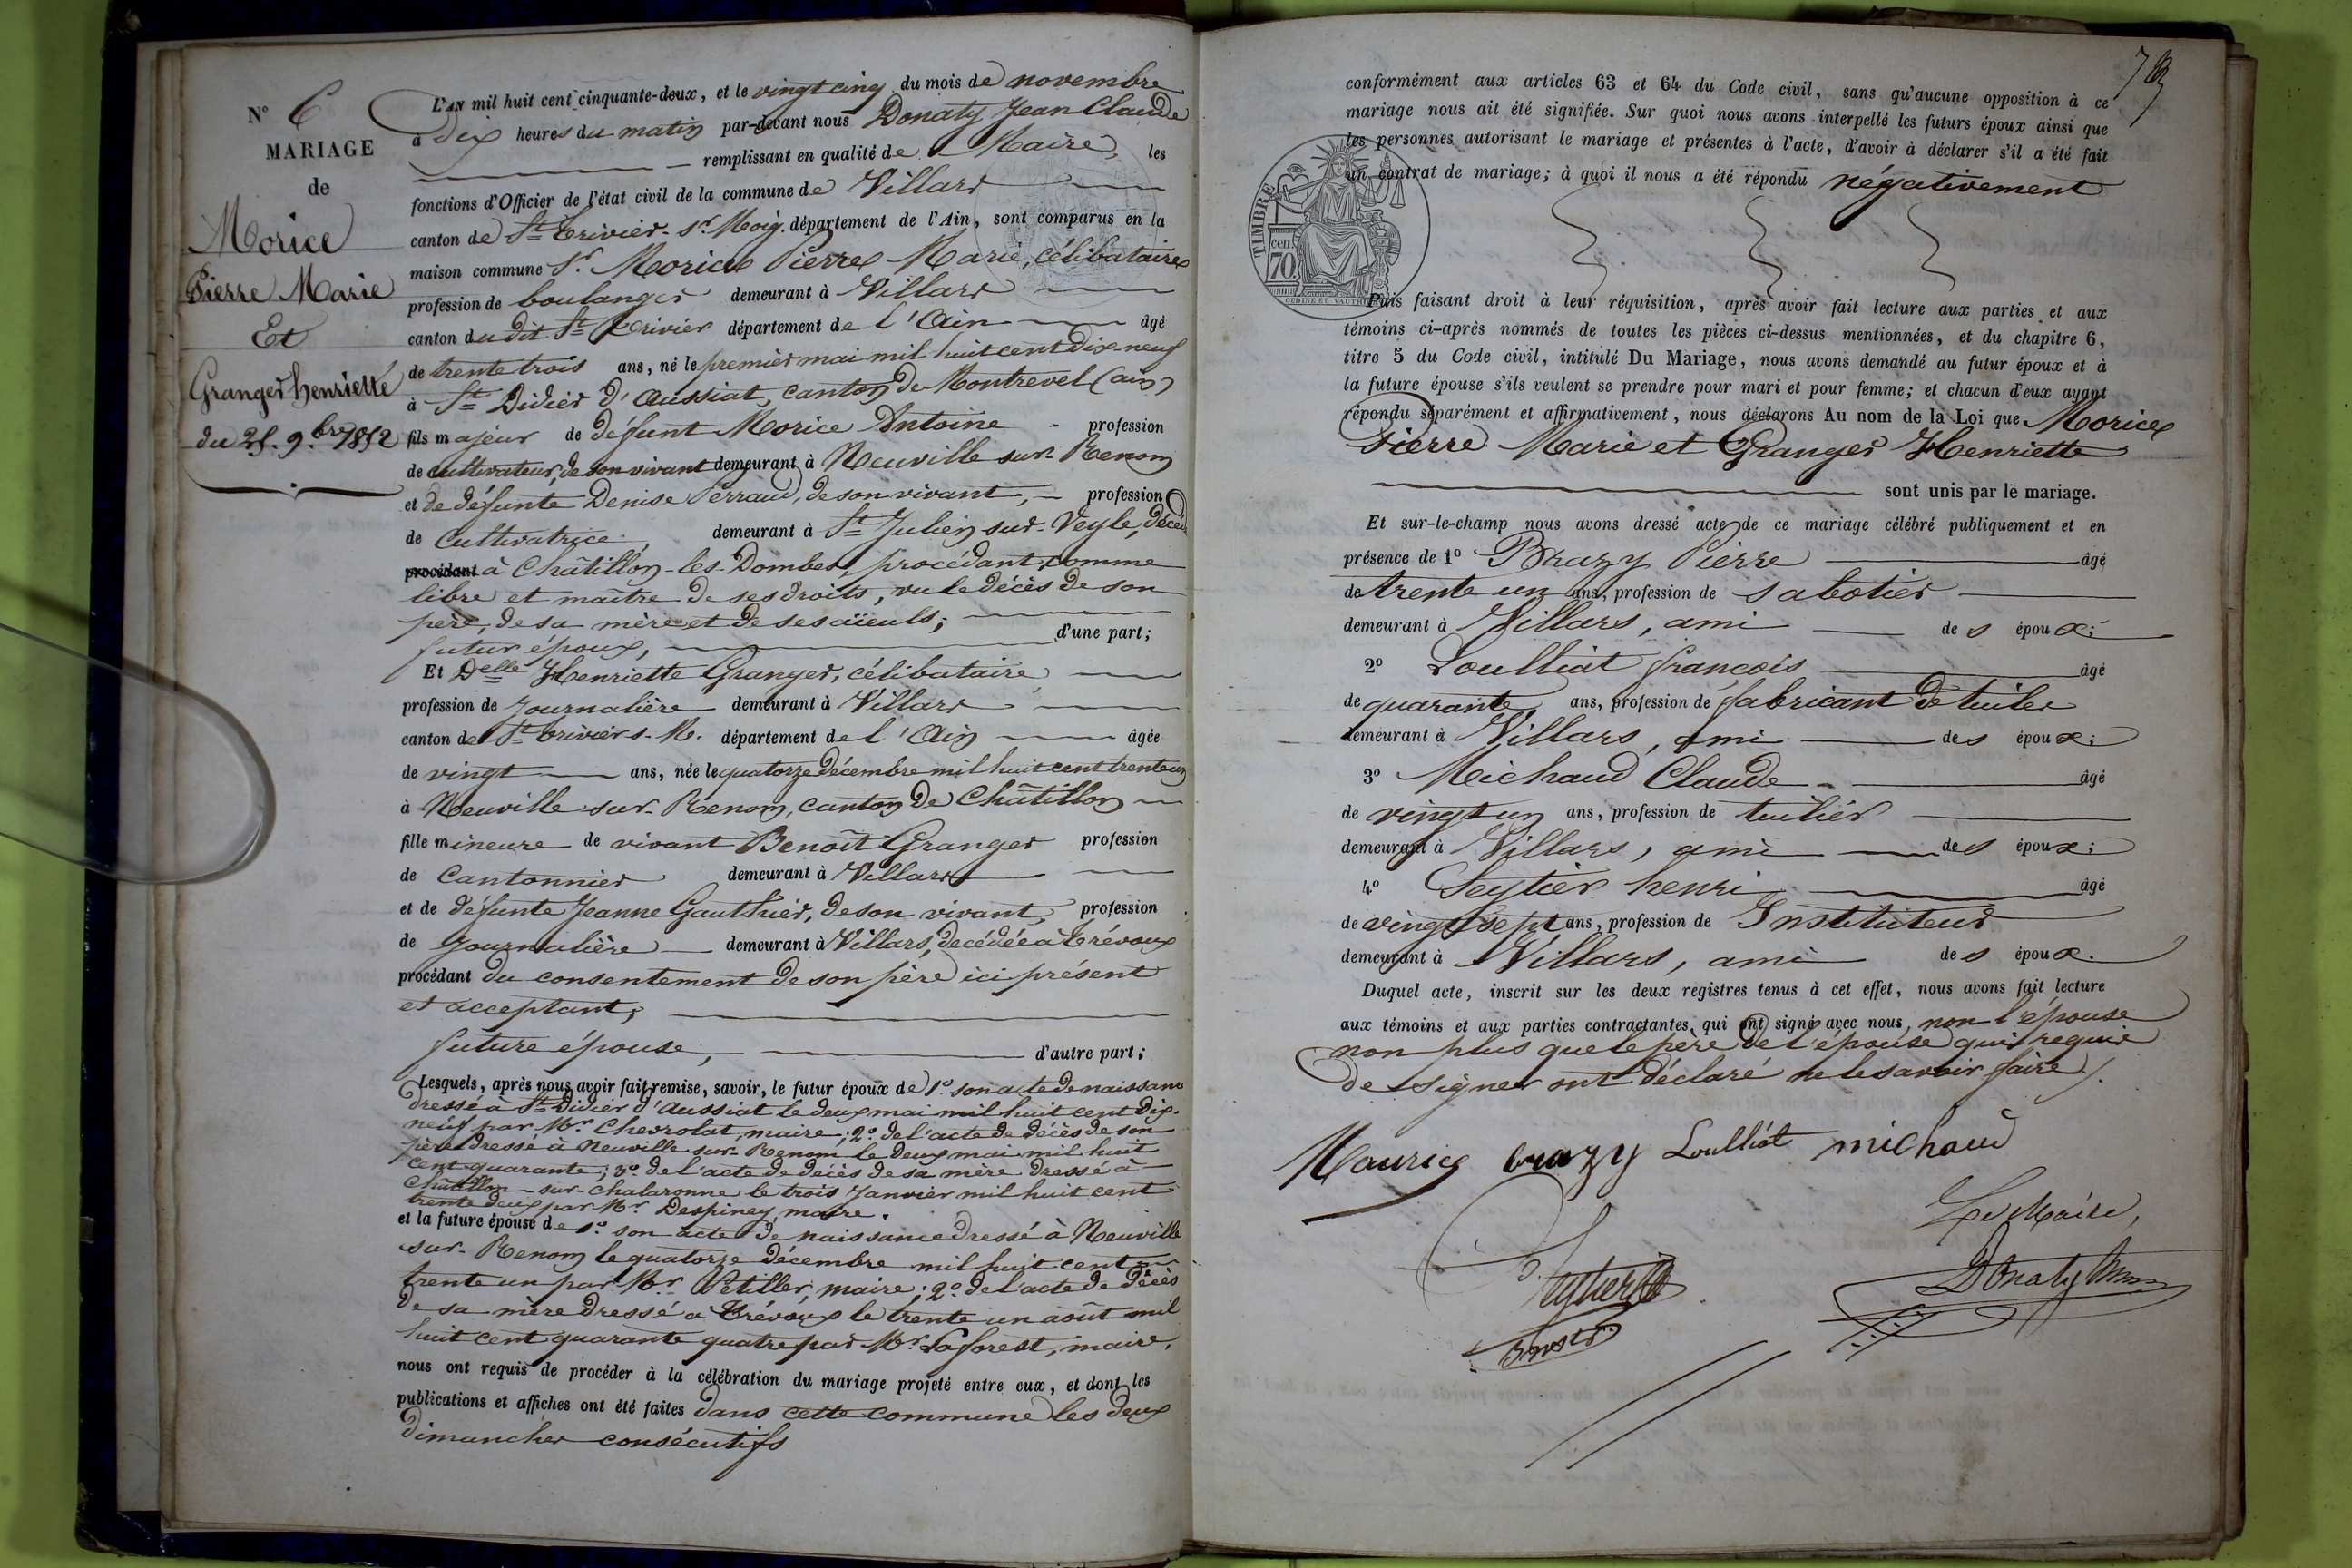 N° 6
MARIAGE
de
Morice
Pierre Marie
Et
Granger henriette
du 25. 9.bre 1852
L'AN mil huit cent cinquante-deux, et le vingt cinq du mois de novembre
à Dix heures du matin par-devant nous Donaty Jean Claude
remplissant en qualité de Maire, les
fonctions d'Officier de l'état civil de la commune de Villars
canton de St Trivier-sr. Moig. département de l'Ain, sont comparus en la
maison commune Sr. Morice Pierre Marie, célibataire
profession de boulanger demeurant à Villars
canton du dit St Trivier département de l'Ain âgé
de trente trois ans, né le premier mai mil huit cent dix-neuf
à St Didier d'Aussiat, canton de Montrevel (ain)
fils majeur de défunt Morice Antoine profession
de cultivateur, de son vivant demeurant à Neuville sur-Renom
et de défunte Denise Perraud, de son vivant, profession
de Cultivatrice, demeurant à St Julien sur-Veyle, décéd
procédant à Châtillon-les-Dombes, procédant comme
libre et maître de ses droits, vu le décès de son
père, de sa mère et de ses aïeuls;
futur époux, d'une part;
Et Delle Henriette Granger, célibataire
profession de Journalière demeurant à Villars
canton de St trivier s. M. département de l'Ain âgée
de vingt ans, née le quatorze décembre mil huit cent trente un
à Neuville sur-Renom, canton de Châtillon
fille mineure de vivant Benoît Granger profession
de Cantonnier demeurant à Villars
et de défunte Jeanne Gauthier, de son vivant, profession
de Journalière demeurant à Villars, décédée à Trévoux
procédant du consentement de son père ici présent
et acceptant,
future épouse, d'autre part;
Lesquels, après nous avoir fait remise, savoir, le futur époux de 1° son acte de naissance
dressé à St Didier d'Aussiat le deux mai mil huit cent dix-
neuf par Mr. Chevrolat, maire; 2° de l'acte de décès de son
père dressé à Neuville-sur-Renom le deux mai mil huit
cent quarante; 3° de l'acte de décès de sa mère dressé à
Châtillon-sur-Chalaronne le trois Janvier mil huit cent
trente deux par Mr. Despiney, maire.
et la future épouse de 1° son acte de naissance dressé à Neuville
sur-Renom le quatorze décembre mil huit cent
trente un par Mr. Petiller, maire; 2° de l'acte de décès
de sa mère dressé à Trévoux le trente un août mil
huit cent quarante quatre par Mr. Laforest, maire,
nous ont requis de procéder à la célébration du mariage projeté entre eux, et dont les
publications et affiches ont été faites dans cette commune les deux
dimanches consécutifs
conformément aux articles 63 et 64 du Code civil, sans qu'aucune opposition à ce
mariage nous ait été signifiée. Sur quoi nous avons interpellé les futurs époux ainsi que
les personnes autorisant le mariage et présentes à l'acte, d'avoir à déclarer s'il a été fait
un contrat de mariage; à quoi il nous a été répondu négativement
TIMBRE
70 cen.
Puis faisant droit à leur réquisition, après avoir fait lecture aux parties et aux
témoins ci-après nommés de toutes les pièces ci-dessus mentionnées, et du chapitre 6,
titre 5 du Code civil, intitulé Du Mariage, nous avons demandé au futur époux et à
la future épouse s'ils veulent se prendre pour mari et pour femme; et chacun d'eux ayant
répondu séparément et affirmativement, nous déclarons Au nom de la Loi que Morice
Pierre Marie et Granger Henriette
sont unis par le mariage.
Et sur-le-champ nous avons dressé acte de ce mariage célébré publiquement et en
présence de 1° Brazy Pierre âgé
de trente un ans, profession de sabotier
demeurant à Villars, ami des époux;
2° Loulliat françois âgé
de quarante ans, profession de fabricant de tuiles
demeurant à Villars, ami des époux;
3° Michaud Claude âgé
de vingt un ans, profession de tuilier
demeurant à Villars, ami des époux;
4° Seytier henri âgé
de vingt sept ans, profession de Instituteur
demeurant à Villars, ami des époux.
Duquel acte, inscrit sur les deux registres tenus à cet effet, nous avons fait lecture
aux témoins et aux parties contractantes, qui ont signé avec nous, non l'épouse
non plus que le père de l'épouse qui requis
de signer ont déclaré ne le savoir faire/.
Maurice brazy Loulliat michaud
Le Maire,
Seytier
Donaty
Instr